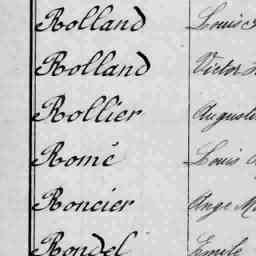 Rolland Louis
Rolland Victor
Rollier Augustin
Romé Louis
Roncier Ange
Rondel Emile